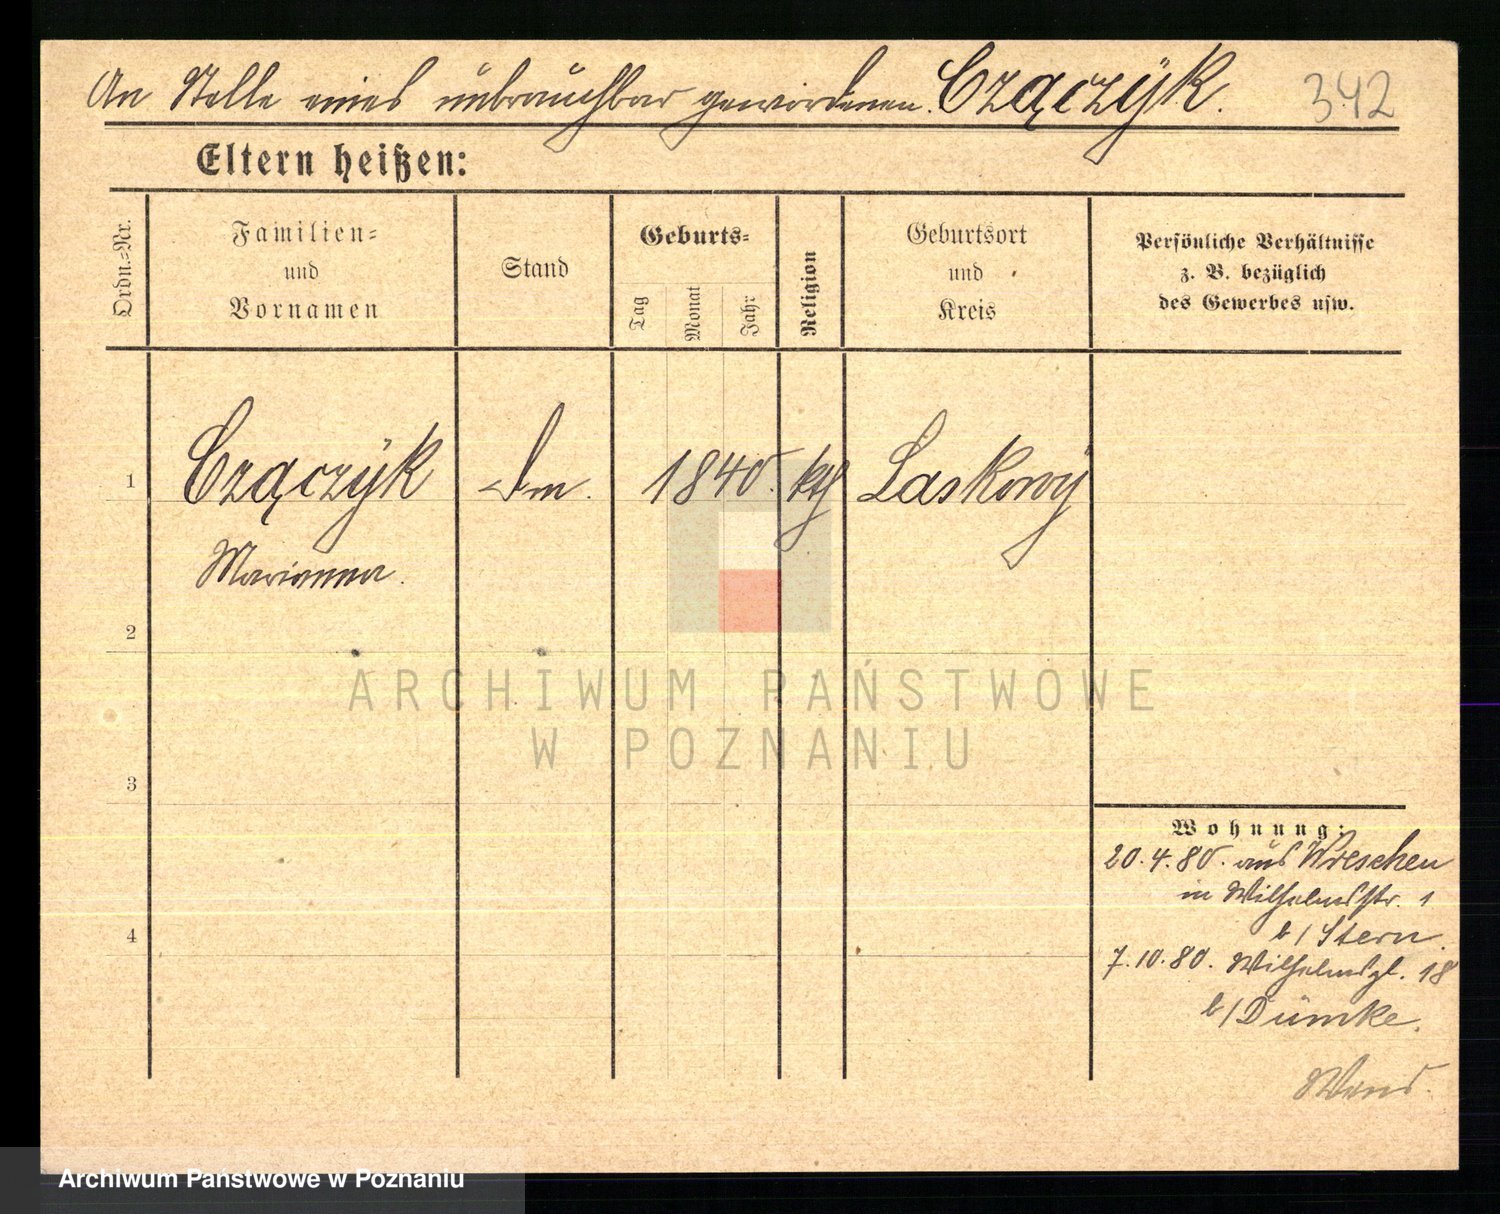 An Stelle eines unbrauchbar gewordenen. Czączyk. 342
Eltern heißen:
Ordn.=Nr.
Familien=
und
Vornamen
Stand
Geburts=
Tag
Monat
Jahr
Religion
Geburtsort
und
Kreis
Persönliche Verhältnisse
z. B. bezüglich
des Gewerbes usw.
1 Czączyk Dm. 1840. kth Laskowy
Marianna.
2
3
4
Wohnung:
20.4.80. aus Wreschen
in Wilhelmstr. 1
b/ Stern.
7.10.80. Wilhelmspl. 18
b/ Dümke.
ARCHIWUM PAŃSTWOWE
W POZNANIU
Archiwum Państwowe w Poznaniu